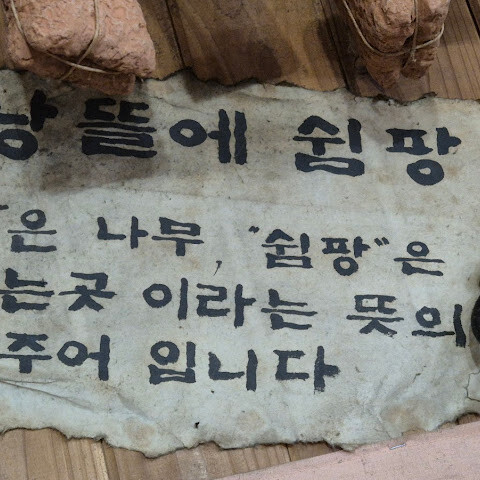 뜰에 쉼팡
은 나무, "쉼팡"은
는곳 이라는 뜻의
주어 입니다